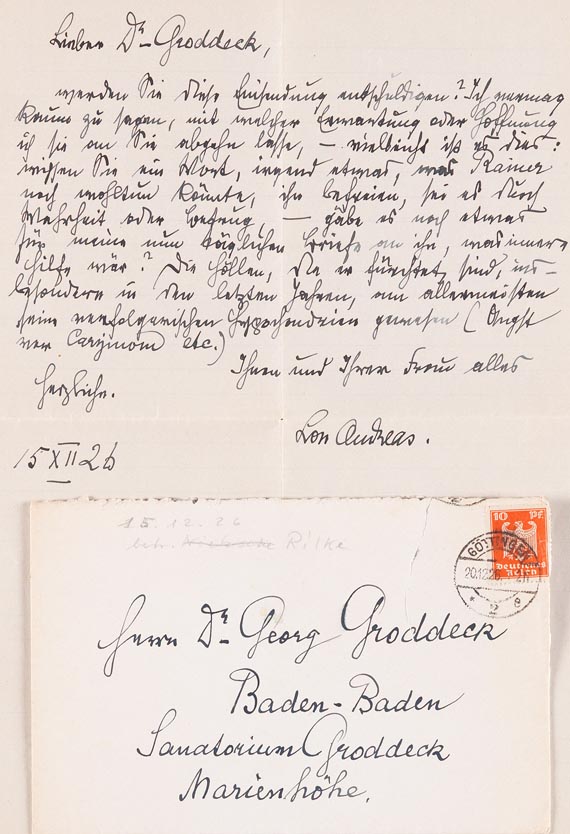 Lieber Dr Groddeck,
werden Sie diese Einsendung entschuldigen? Ich vermag
kaum zu sagen, mit welcher Erwartung oder Hoffnung
ich sie an Sie abgehn lasse, – vielleicht ist es dies:
wissen Sie ein Wort, irgend etwas, was Rainer
noch wohltun könnte, ihn befreien, sei es durch
Wahrheit oder Betrug, – gäbe es noch etwas
für meine nun täglichen Briefe an ihn, was innere
Hilfe wär? Die Höllen, die er fürchtet, sind, ins-
besondere in den letzten Jahren, am allermeisten
seine verfolgerischen Hypochondrien gewesen (Angst
vor Carzinom etc.)
Ihnen und Ihrer Frau alles
Herzliche.
Lou Andreas.
15 XII 26
15.12.26
betr. Rilke
10 Pf.
Deutsches
Reich
GÖTTINGEN
20.12.26
* 2 e
Herrn Dr Georg Groddeck
Baden-Baden
Sanatorium Groddeck
Marienhöhe.